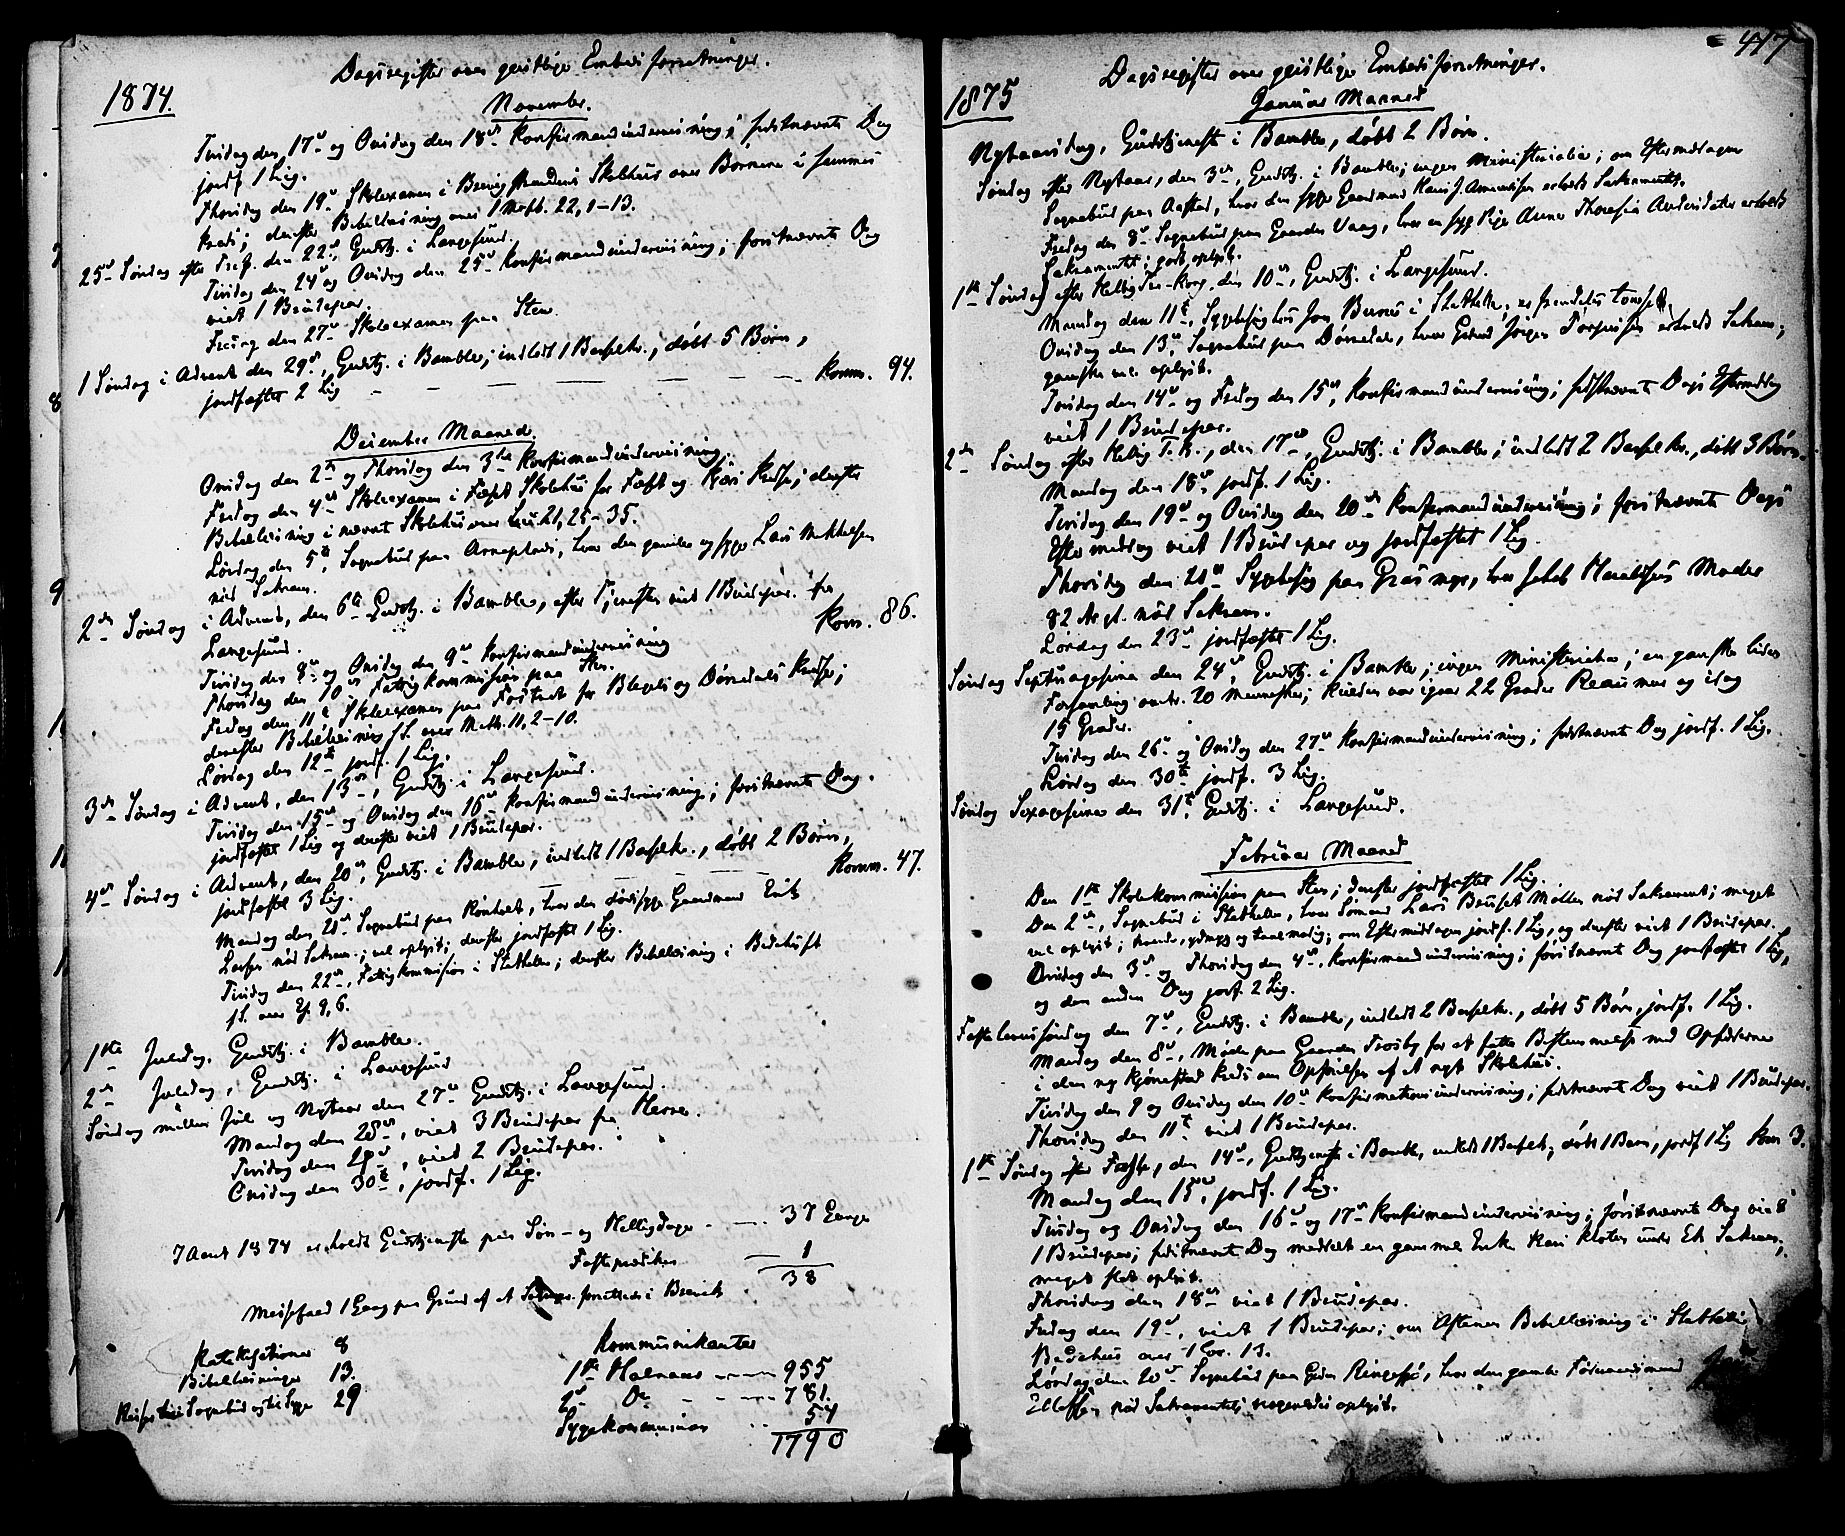 Dagsregister over geistlige Embedsforretninger.
1874.
November.
Tirsdag den 17de og Onsdag den 18de Konfirmandundervisning; sidstnævnte Dag
jordf. 1 Lig.
Thorsdag den 19de Skoleexamen i Skolehus over Børnene i sammes
Kreds; derefter Bibellæsning over 1 Moseb. 22, 1-13.
25de Søndag efter Tref. den 22de, Gudstj. i Langesund.
Tirsdag den 24de og Onsdag den 25de Konfirmandundervisning; førstnævnte Dag
viet 1 Brudepar.
Fredag den 27de Skoleexamen paa Sten.
1 Søndag i Advent den 29de, Gudstj. i Bamble; indledt 1 Barselkv., døbt 5 Børn,
jordfæstet 2 Lig - - - - - Komm. 94.
December Maaned.
Onsdag den 2den og Thorsdag den 3die Konfirmandundervisning.
Fredag den 4de Skoleexamen i Skolehus for og Kjøn Kredse; derefter
Bibellæsning i nævnte Skolehus over Luc. 21, 25-35.
Lørdag den 5te, Sognebud paa, hvor den gamle og syge Lars Mikkelsen
nød Sakram.
2den Søndag i Advent, den 6te Gudstj. i Bamble, efter Tjenesten viet 1 Brudepar fra
Langesund. Kom. 86.
Tirsdag den 8de og Onsdag den 9de Konfirmandundervisning
Thorsdag den 10de Fattigkommission paa Sten.
Fredag den 11te Skoleexamen paa for og Dørsdals Kredse;
derefter Bibellæsning sst. over Math. 11, 2-10.
Lørdag den 12te jordf. 1 Lig.
3die Søndag i Advent, den 13de, Gudstj. i Langesund.
Tirsdag den 15de og Onsdag den 16de Konfirmandundervisning; førstnævnte Dag
jordfæstet 1 Lig og derefter viet 1 Brudepar.
4de Søndag i Advent, den 20de, Gudstj. i Bamble, indledt 1 Barselkv., døbt 2 Børn,
jordfæstet 3 Lig. - - - - - Komm. 47.
Mandag den 21de Sognebud paa Rønholt, hvor den dødssyge Gaardmand Erik
Larsen nød Sakram.; vel oplyst; derefter jordfæstet 1 Lig.
Tirsdag den 22de, Fattigkommission i Stathelle; derefter Bibellæsning i Bedehuset
sst. over Es. 9, 6.
1ste Juledag, Gudstj. i Bamble.
2den Juledag, Gudstj. i Langesund
Søndag mellem Jul og Nytaar den 27de Gudstj. i Langesund.
Mandag den 28de, viet 3 Brudepar fra Herre.
Tirsdag den 29de, viet 2 Brudepar.
Onsdag den 30te, jordf. 1 Lig.
I Aaret 1874 er holdt Gudstjeneste paa Søn- og Helligdage - - - 37 Gange
Fasteprædiken 1
38
Messefald 1 Gang paa Grund af forrettede i Brevik
Katekisationer 8
Bibellæsninger 13.
Sognebud og til Syge 29
Kommunikanter
1ste Halvaar - - - 955
2det Do - - - 781.
Sygekommunion - - 54
1790
447
Dagsregister over geistlige Embedsforretninger.
1875
Januar Maaned
Nytaarsdag, Gudstjeneste i Bamble, døbt 2 Børn.
Søndag efter Nytaar, den 3die, Gudstj. i Bamble; ingen Ministerialia; om Eftermiddagen
Sognebud paa Aafstad, hvor den syge Gaardmand Hans J. Amundsen erholdt Sakramentet.
Fredag den 8de Sognebud paa Gaarden Vaag, hvor en syg Pige Anne Theresia Andersdatter erholdt
Sakramentet; godt oplyst.
1ste Søndag efter Hellig Tre-Kong. den 10de, Gudstj. i Langesund.
Mandag den 11te, Sygebesøg hos Jon i Stathelle;
Onsdag den 13de, Sognebud paa Dørsdal, hvor Jørgen erholdt Sakram.;
ganske vel oplyst.
Torsdag den 14de og Fredag den 15de, Konfirmandundervisning; sidstnævnte Dags Eftermiddag
viet 1 Brudepar.
2den Søndag efter Hellig T. K., den 17de, Gudstj. i Bamble; indledt 2 Barselkv., døbt 3 Børn.
Mandag den 18de, jordf. 1 Lig.
Tirsdag den 19de og Onsdag den 20de Konfirmandundervisning; førstnævnte Dags
Eftermiddag viet 1 Brudepar og jordfæstet 1 Lig.
Thorsdag den 21de Sygebesøg paa Grasmyr, hvor Jakob Moder
82 Ar gl. nød Sakram.
Lørdag den 23de jordfæstet 1 Lig.
Søndag Septuagesima den 24de, Gudstj. i Bamble; ingen Ministerialia; en ganske liden
Forsamling omtr. 20 Mennesker; Kulden var igaar 22 Grader Reaumur og idag
15 Grader.
Tirsdag den 26de og Onsdag den 27de Konfirmandundervisning; sidstnævnte Dag jordf. 1 Lig.
Lørdag den 30te jordf. 3 Lig.
Søndag Sexagesima den 31te, Gudstj. i Langesund.
Februar Maaned
Den 1ste Skolekommission paa Sten; derefter jordfæstet 1 Lig.
Den 2den, Sognebud i Stathelle, hvor Sømand Lars Møller nød Sakrament; meget
vel oplyst; ydmyg og taalmodig; om Eftermiddagen jordf. 1 Lig, og derefter viet 1 Brudepar.
Onsdag den 3die og Thorsdag den 4de, Konfirmandundervisning; førstnævnte Dag jordfæstet 1 Lig,
og den anden Dag jordf. 2 Lig.
Fastelavnssøndag den 7de, Gudstj. i Bamble, indledt 2 Barselkv., døbt 5 Børn, jordf. 1 Lig.
Mandag den 8de, Møde paa Gaarden Trosby for at fatte Bestemmelse med Opsidderne
i den ny Kjønstad Kreds om Opførelsen af et nyt Skolehus.
Tirsdag den 9 og Onsdag den 10de Konfirmationsundervisning; sidstnævnte Dag viet 1 Brudepar.
Thorsdag den 11te viet 1 Brudepar.
1ste Søndag efter Faste, den 14de, Gudstjeneste i Bamble, indledt 1 Barselk., døbt 1 Barn, jordf 1 Lig Kom 3.
Mandag den 15de, jordf. 1 Lig.
Tirsdag og Onsdag den 16de og 17de Konfirmandundervisning; førstnævnte Dag viet
1 Brudepar; sidstnævnte Dag meddelt en gammel Enke Kari Sakram.;
meget slet oplyst.
Thorsdag den 18de viet 1 Brudepar.
Fredag den 19de, viet 1 Brudepar; om Aftenen Bibellæsning i Stathelle
Bedehus over 1 Cor. 13.
Lørdag den 20de Sognebud paa Ringsjø, hvor den gamle
Ellefsen nød Sakramentet; nogenledes oplyst.